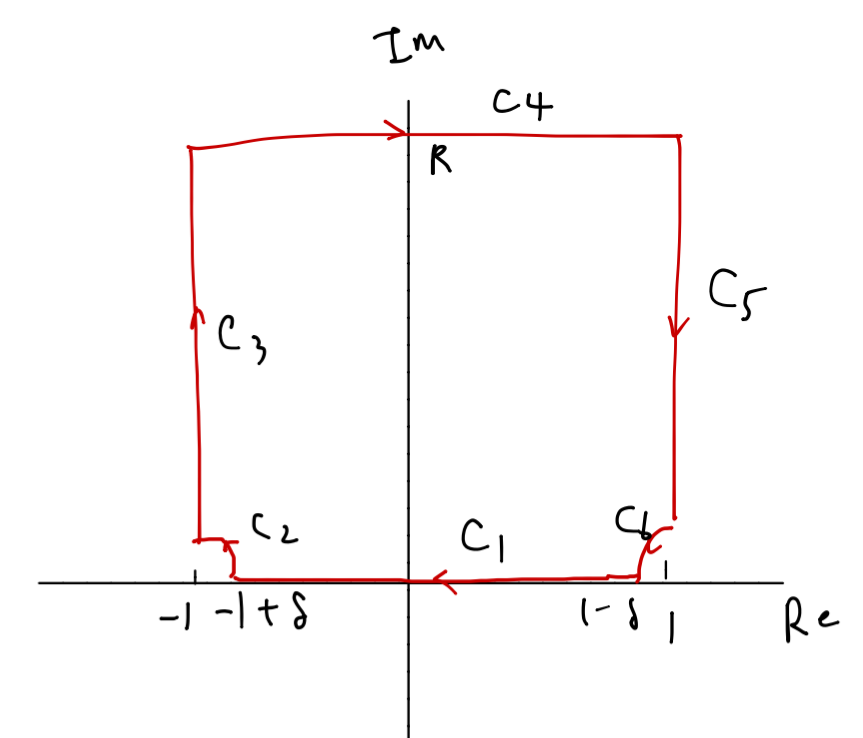 Im
C4
R
C5
C3
C2
C6
C1
-1 -1+δ
1-δ 1
Re